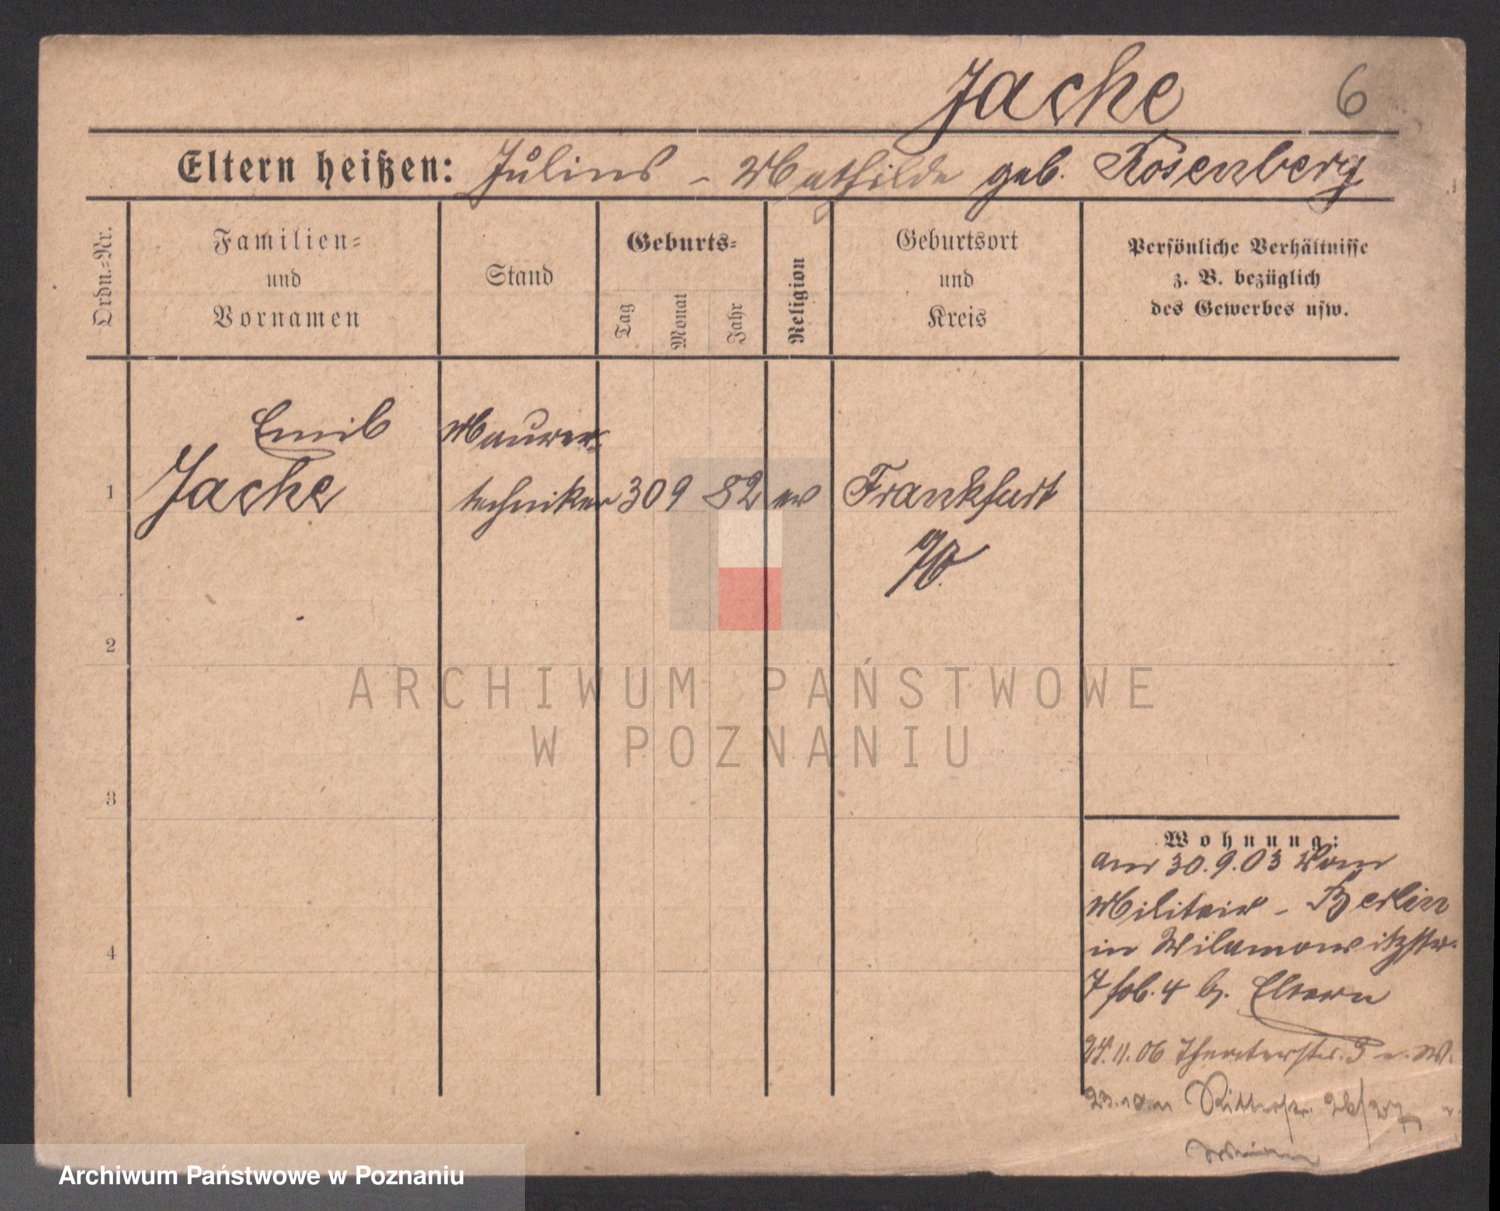 Jache 6
Eltern heißen: Julius - Mathilde geb. Rosenberg
Ordn.-Nr.
Familien-
und
Vornamen
Stand
Geburts-
Tag
Monat
Jahr
Religion
Geburtsort
und
Kreis
Persönliche Verhältnisse
z. B. bezüglich
des Gewerbes usw.
1
Emil
Jache
Maurer-
techniker
30 9 82 ev
Frankfurt
2
3
4
Wohnung:
am 30.9.03 vom
Militair - Berlin
in Wilamowitzstr.
7 b. Eltern
11.06 Theaterstr. 3
Ritterstr.
ARCHIWUM PAŃSTWOWE
W POZNANIU
Archiwum Państwowe w Poznaniu